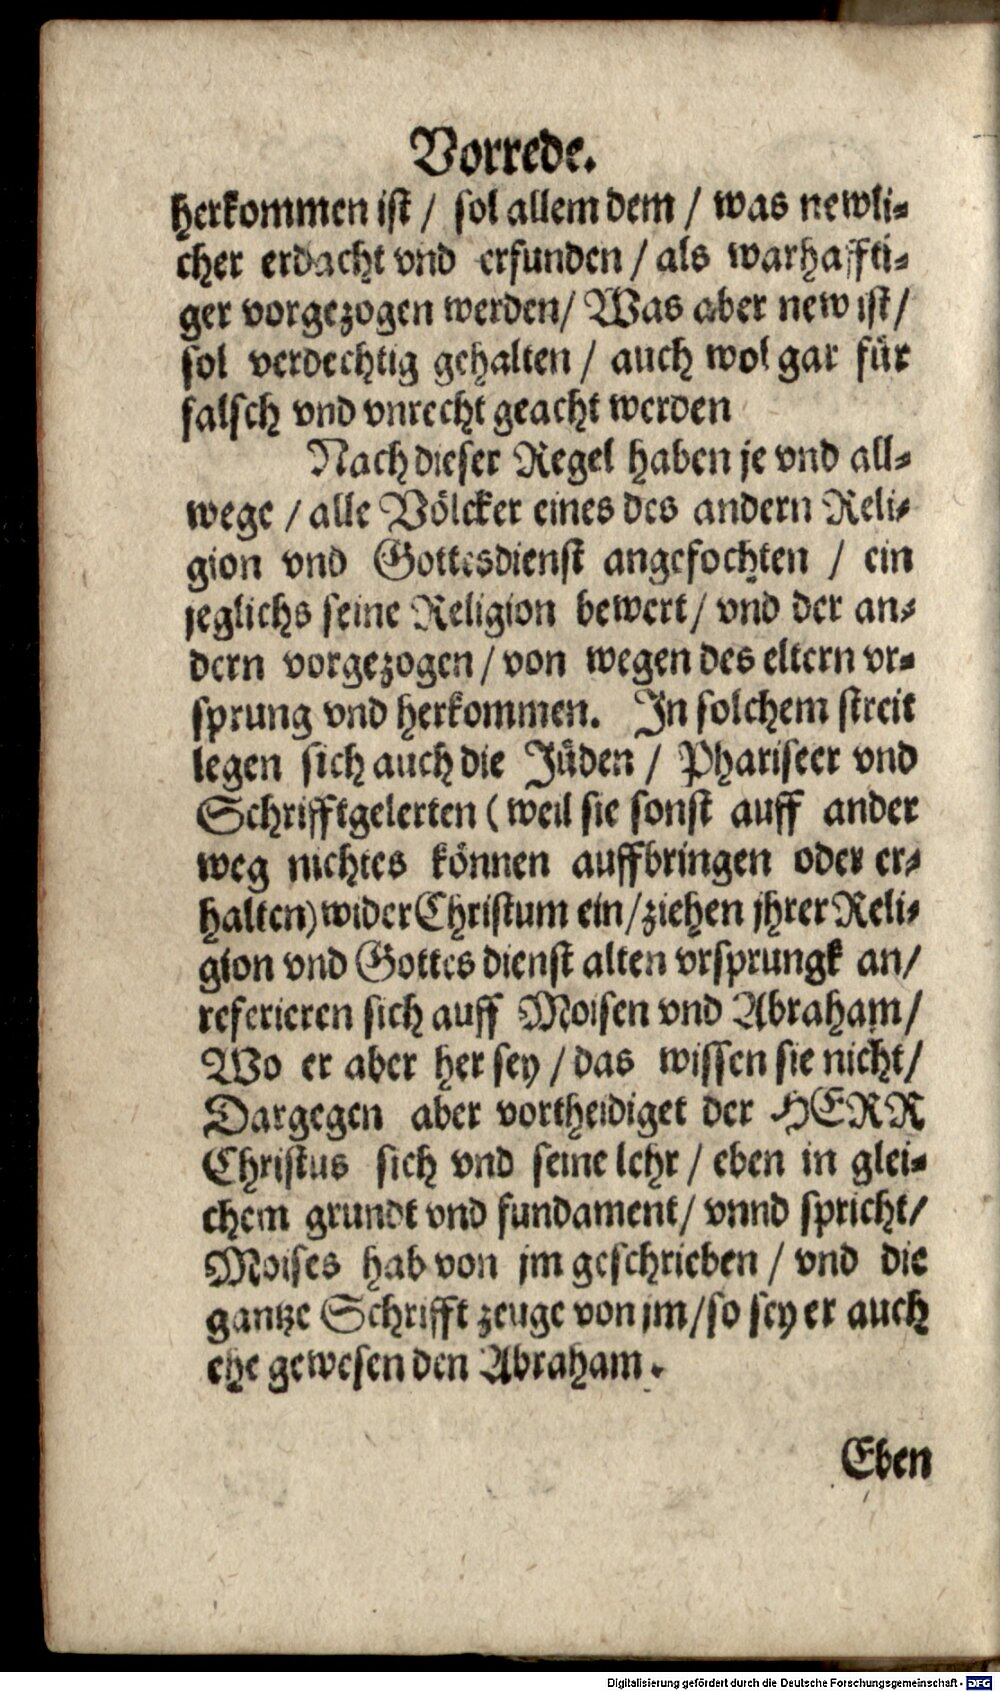 Vorrede.
herkommen ist / sol allem dem / was newli-
cher erdacht vnd erfunden / als warhaffti-
ger vorgezogen werden / Was aber new ist /
sol verdechtig gehalten / auch wol gar für
falsch vnd vnrecht geacht werden
Nach dieser Regel haben je vnd all-
wege / alle Völcker eines des andern Reli-
gion vnd Gottesdienst angefochten / ein
jeglichs seine Religion bewert / vnd der an-
dern vorgezogen / von wegen des eltern vr-
sprung vnd herkommen. In solchem streit
legen sich auch die Jüden / Phariseer vnd
Schrifftgelerten ( weil sie sonst auff ander
weg nichtes können auffbringen oder er-
halten) wider Christum ein / ziehen jhrer Reli-
gion vnd Gottes dienst alten vrsprungk an /
referieren sich auff Moisen vnd Abraham /
Wo er aber her sey / das wissen sie nicht /
Dargegen aber vortheidiget der HERR
Christus sich vnd seine lehr / eben in glei-
chem grundt vnd fundament / vnnd spricht /
Moises hab von jm geschrieben / vnd die
gantze Schrifft zeuge von jm / so sey er auch
ehe gewesen den Abraham.
Eben
Digitalisierung gefördert durch die Deutsche Forschungsgemeinschaft - DFG